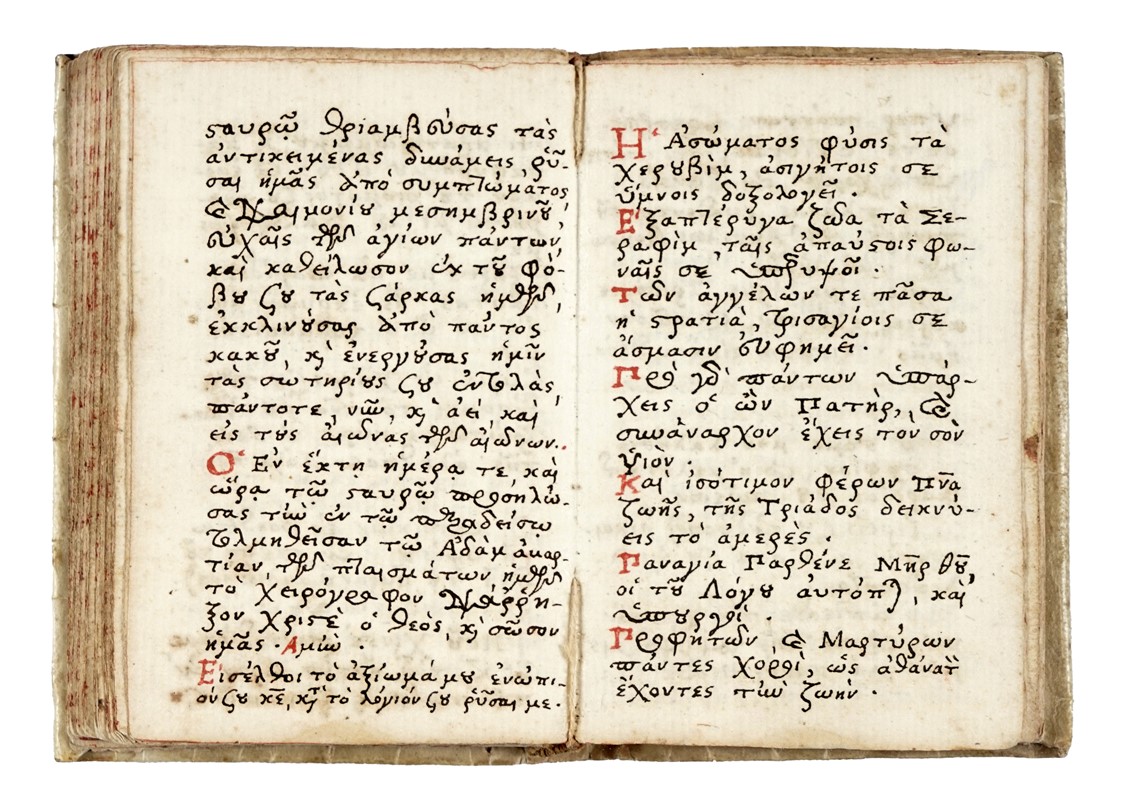 ϛαυρῷ θριαμβεύσας τὰς
ἀντικειμένας δυνάμεις ῥῦ-
σαι ἡμᾶς ἀπὸ συμπτώματος
καὶ δαιμονίου μεσημβρινοῦ,
εὐχαῖς τῶν ἁγίων πάντων,
καὶ καθείλωσον ἐκ τοῦ φό-
βου σου τὰς σάρκας ἡμῶν,
ἐκκλινούσας ἀπὸ παντὸς
κακοῦ, κὶ ἐνεργούσας ἡμῖν
τὰς σωτηρίους σου ἐντολὰς,
πάντοτε, νῦν, κὶ ἀεὶ, καὶ
εἰς τοὺς αἰῶνας τῶν αἰώνων..
Ὁ Ἐν ἕκτῃ ἡμέρᾳ τε, καὶ
ὥρᾳ τῷ ϛαυρῷ προσηλώ-
σας τὴν ἐν τῷ παραδείσῳ
τολμηθεῖσαν τῷ Ἀδὰμ ἁμαρ-
τίαν, τῶν πταισμάτων ἡμῶν
τὸ χειρόγραφον διάῤῥη-
ξον Χριϛὲ ὁ θεὸς, κὶ σῶσον
ἡμᾶς · Ἀμήν ·
Εἰσέλθοι τὸ ἀξίωμά μου ἐνώπι-
όν σου κε̅, κτ̀ τὸ λόγιόν σου ῥῦσαι με.
Ἡ Ἀσώματος φύσις τὰ
χερυβὶμ, ἀσιγήτοις σε
ὕμνοις δοξολογεῖ ·
Ἑξαπτέρυγα ζῶα τὰ Σε-
ραφὶμ, ταῖς ἀπαύϛοις φω-
ναῖς σε ὑπερυψοῖ ·
τῶν ἀγγέλων τε πᾶσα
ἡ ϛρατιὰ, τρισαγίοις σε
ἄσμασιν εὐφημεῖ ·
Πρὸ γὰρ πάντων ὑπάρ-
χεις ὁ ὢν Πατὴρ, καὶ
συνάναρχον ἔχεις τὸν σὸν
ὑιὸν ·
Καὶ ἰσότιμον φέρων Πν̅α
ζωῆς, τῆς Τριάδος δεικνύ-
εις τὸ ἀμερὲς ·
Παναγία Παρθένε Μη̅ρ θυ̅,
οἱ τοῦ Λόγου αὐτόπται, καὶ
ὑπουργοὶ ·
Προφητῶν, καὶ Μαρτύρων
πάντες χοροὶ, ὡς ἀθάνατ
ἔχοντες τὴν ζωὴν ·